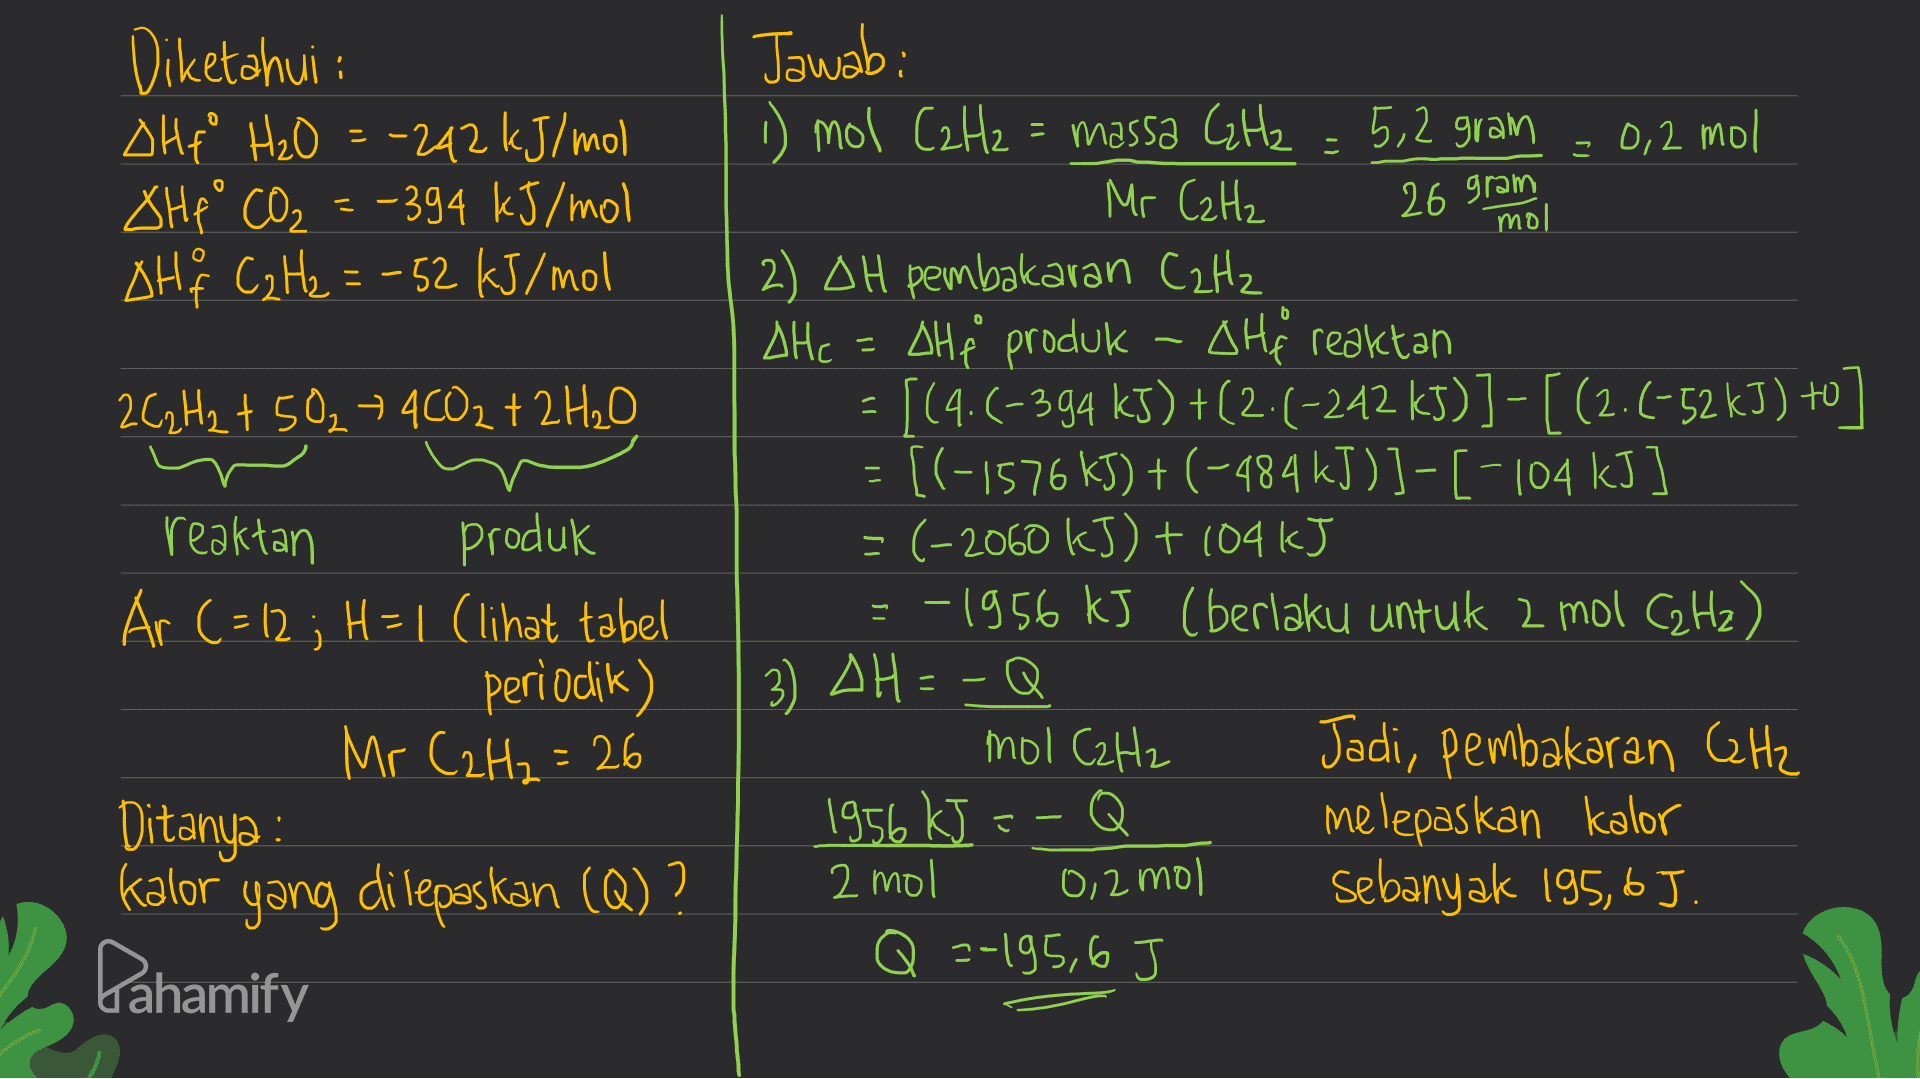 Diketahui :
ΔHf° H₂O = -242 kJ/mol
ΔHf° CO₂ = -394 kJ/mol
ΔHf° C₂H₂ = -52 kJ/mol
2C₂H₂ + 5O₂ → 4CO₂ + 2H₂O
reaktan produk
Ar C = 12 ; H = 1 (lihat tabel
periodik)
Mr C₂H₂ = 26
Ditanya :
kalor yang dilepaskan (Q) ?
Pahamify
Jawab :
1) mol C₂H₂ = massa C₂H₂ = 5,2 gram = 0,2 mol
Mr C₂H₂ 26 gram
mol
2) ΔH pembakaran C₂H₂
ΔHc = ΔHf° produk - ΔHf° reaktan
= [(4.(-394 kJ) + (2.(-242 kJ)] - [(2.(-52 kJ) + 0]
= [(-1576 kJ) + (-484 kJ)] - [-104 kJ]
= (-2060 kJ) + 104 kJ
= -1956 kJ (berlaku untuk 2 mol C₂H₂)
3) ΔH = -Q
mol C₂H₂
1956 kJ = -Q
2 mol 0,2 mol
Q = -195,6 J
Jadi, pembakaran C₂H₂
melepaskan kalor
sebanyak 195,6 J.